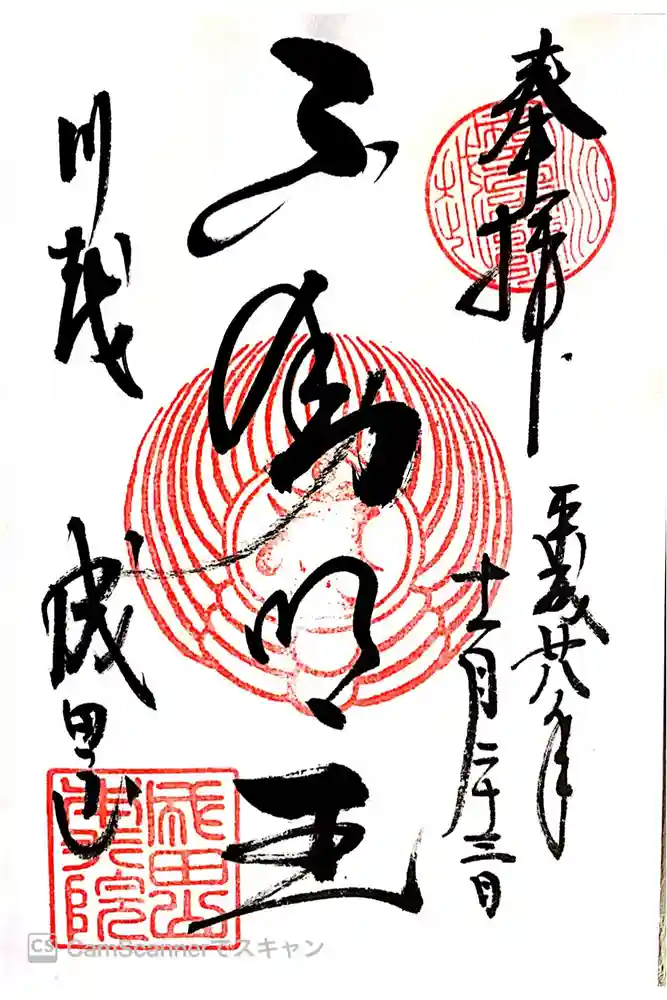 奉拝
平成廿八年
十一月二十三日
不動明王
川越
成田山
成田山
別院
CS CamScannerでスキャン